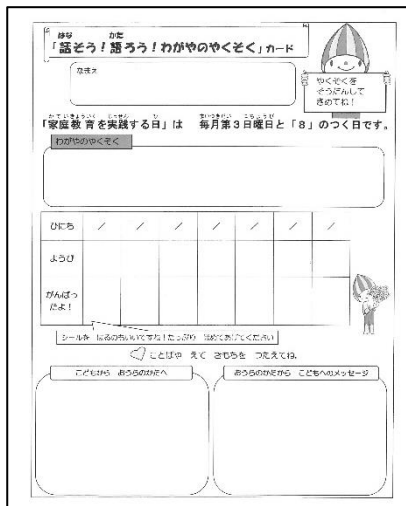 はな かた
「話そう！語ろう！わがやのやくそく」カード
なまえ
やくそくを
そうだんして
きめてね！
「家庭教育を実践する日」は 毎月第３日曜日と「８」のつく日です。
わがやのやくそく
ひにち / / / / / / /
ようび
がんばっ
たよ！
シールを はるのもいいですね！たっぷり ほめてあげてください
ことばや えで おもちを つたえてね。
こどもから おうちのかたへ
おうちのかたから こどもへのメッセージ